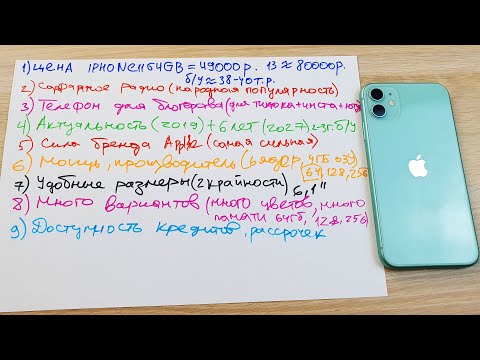 1) ЦЕНА IPHONE 11 64GB = 49000р. 13 ≈ 80000р.
б/у ≈ 38-40т.р.
2) Сарафанное радио (народная популярность)
3) Телефон для блогерства (для тиктока+инста+
4) Актуальность (2019) + 6 лет (2027)
5) Сила бренда Apple (самая сильная)
6) Мощь, производитель (6 ядер, 4ГБ ОЗУ)
64, 128, 256
7) Удобные размеры (2 крайности) 6,1"
8) Много вариантов (много цветов, много
памяти 64гб, 128, 256)
9) Доступность кредитов, рассрочек